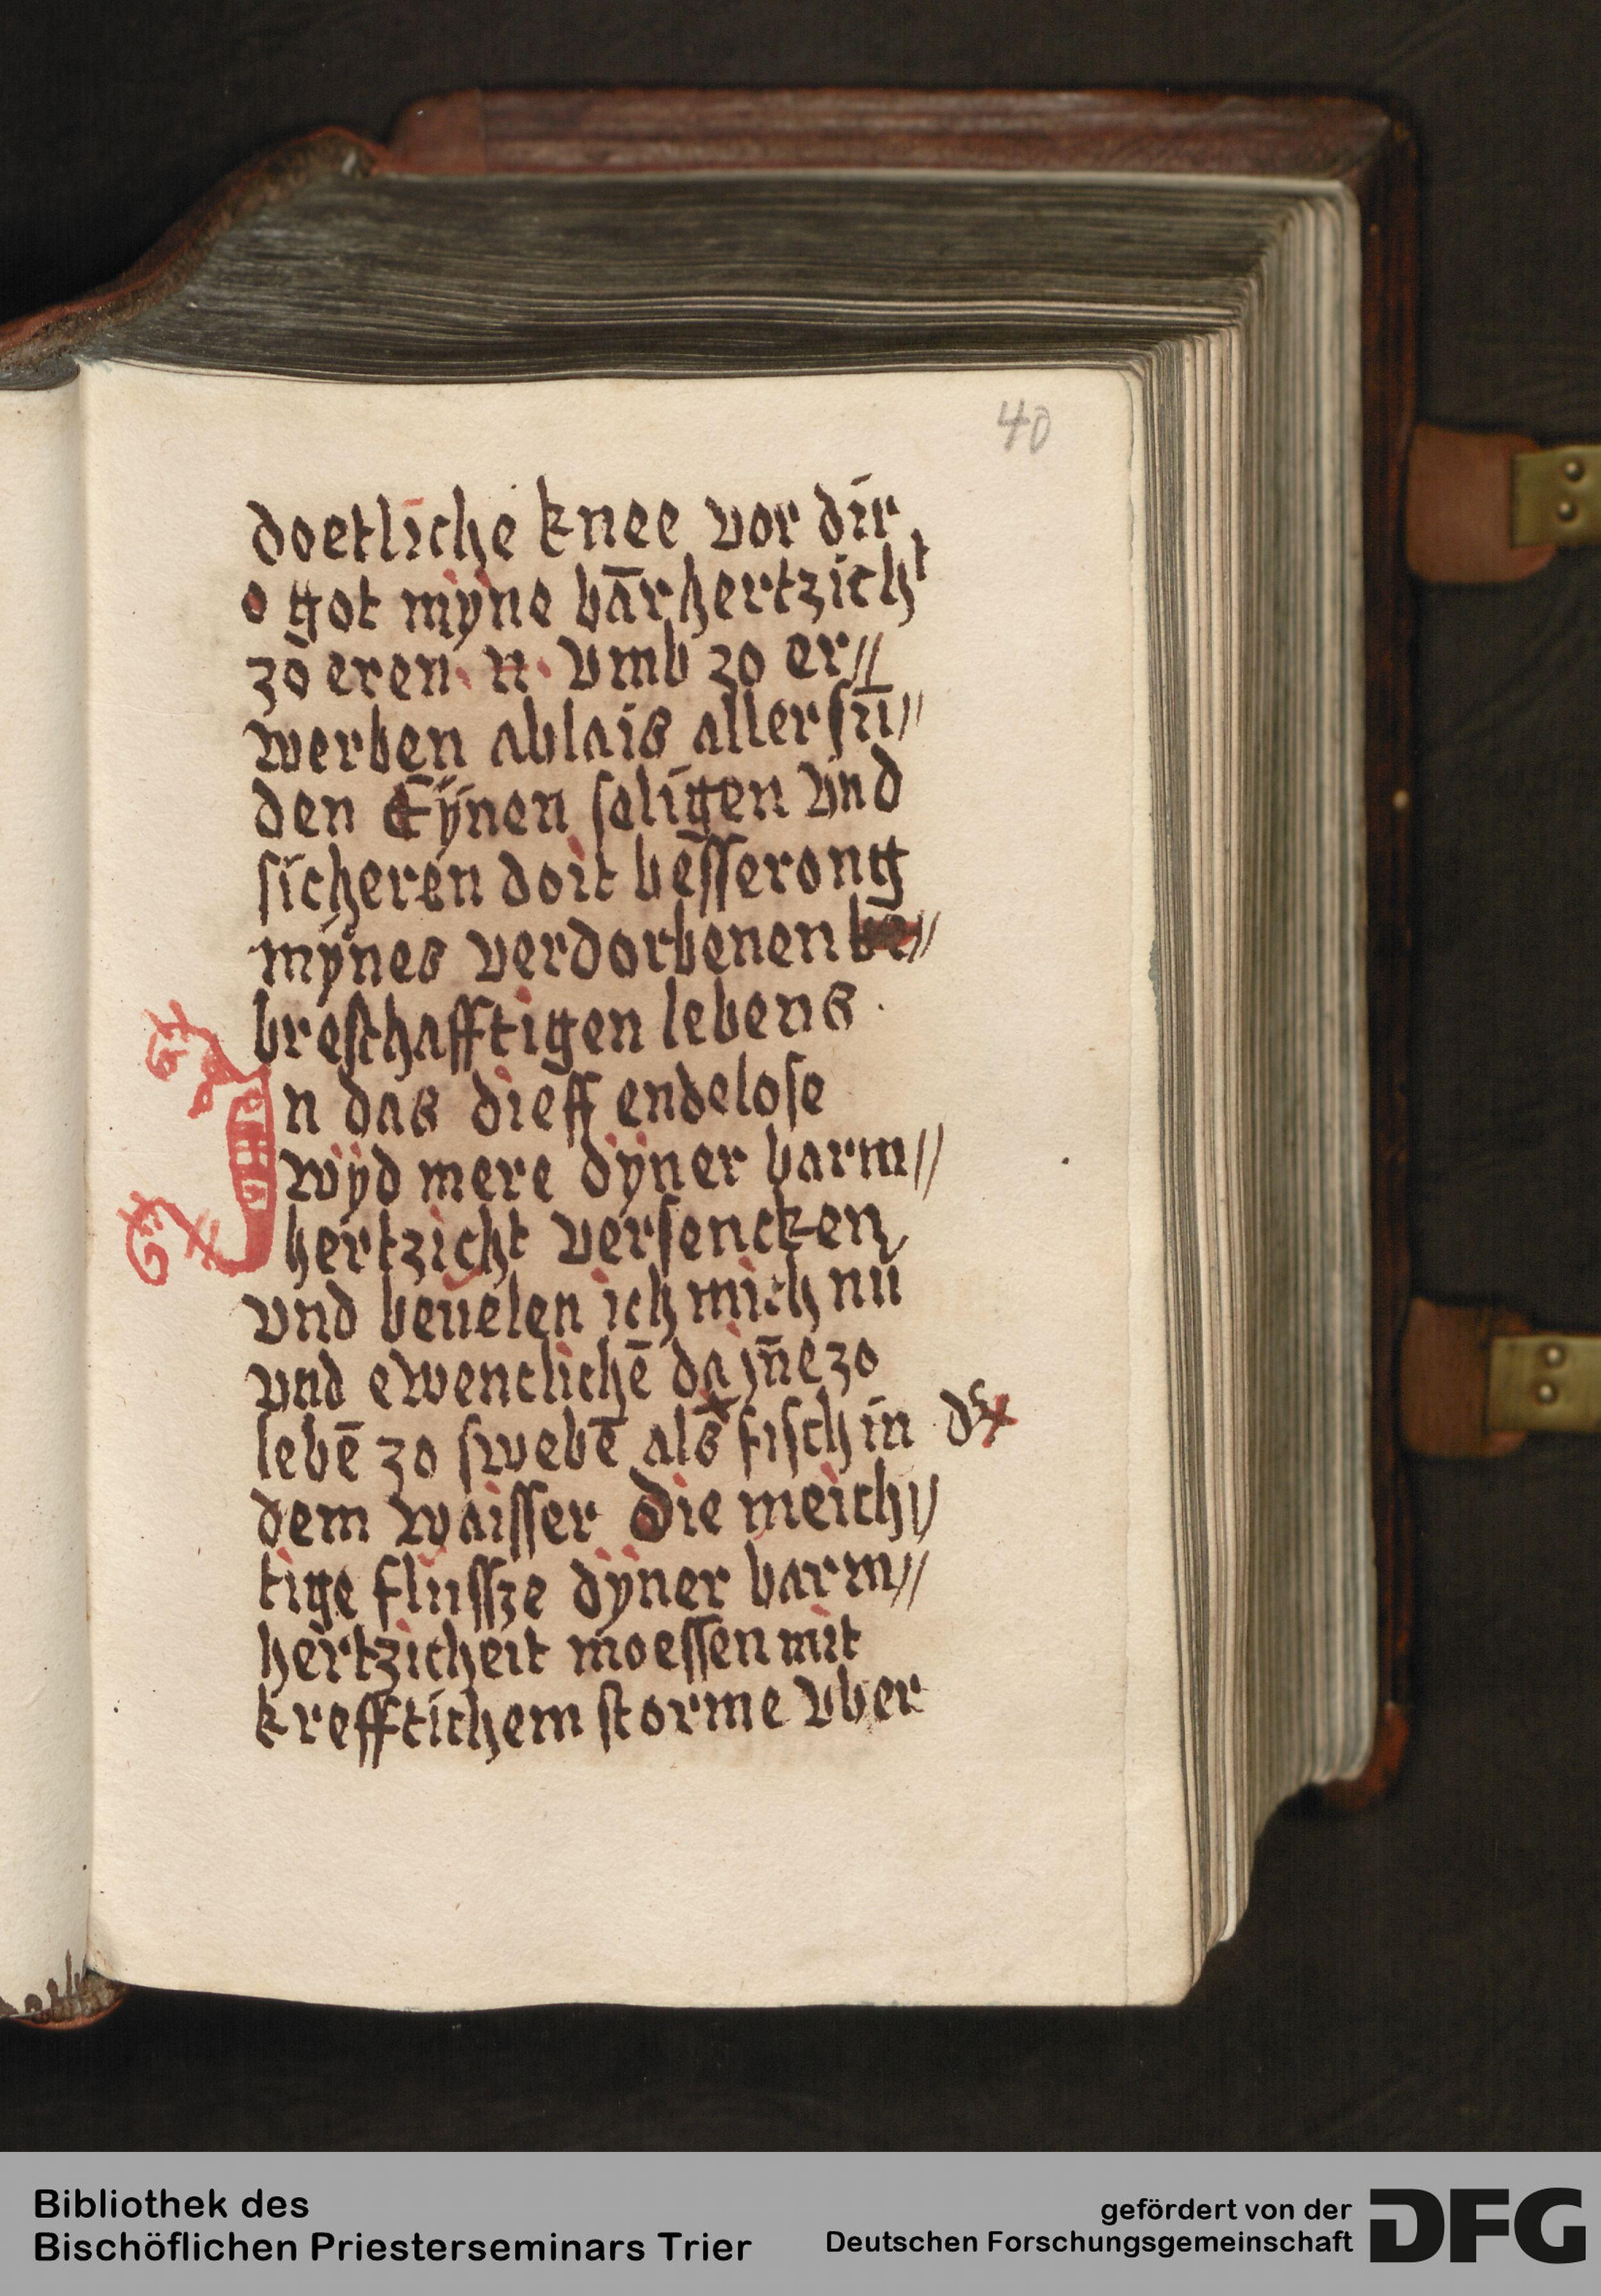 40
doetliche knee vor dir
o got myne bārhertzicht
zo eren · n · vmb zo er//
werben ablais aller sū//
den Eÿnen seligen vnd
sicheren doit besserong
mÿnes verdorbenen be//
bresthafftigen lebens ·
In das dieff endelose
wÿd mere dÿner barm//
hertzicht versencken
vnd beuelen ich mich nu
vnd ewenclichē da jn̄e zo
lebē zo swebē als fisch in
dem waisser Die meich//
tige flussze dÿner barm//
hertzicheit moessen mit
krefftichem storme vber
Bibliothek des
Bischöflichen Priesterseminars Trier
gefördert von der
Deutschen Forschungsgemeinschaft
DFG